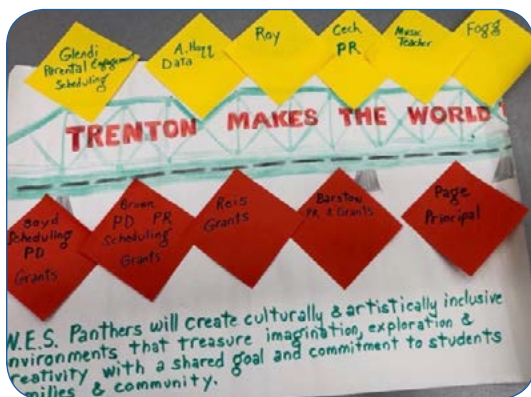 Glendi
Parental Engagement
Scheduling
A. Hogg
Data
Roy
Cech
PR
Music
Teacher
Fogg
TRENTON MAKES THE WORLD
Boyd
Scheduling
PD
Grants
Brown
PD PR
Scheduling
Grants
Reis
Grants
Barstow
PR & Grants
Page
Principal
W.E.S. Panthers will create culturally & artistically inclusive
nvironments that treasure imagination, exploration &
reativity with a shared goal and commitment to students
milies & community.